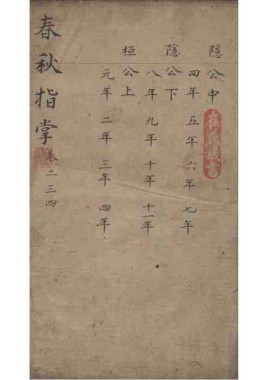 隱公中
四年 五年 六年 七年
隱公下
八年 九年 十年 十一年
桓公上
元年 二年 三年 四年
春秋指掌
卷二三四